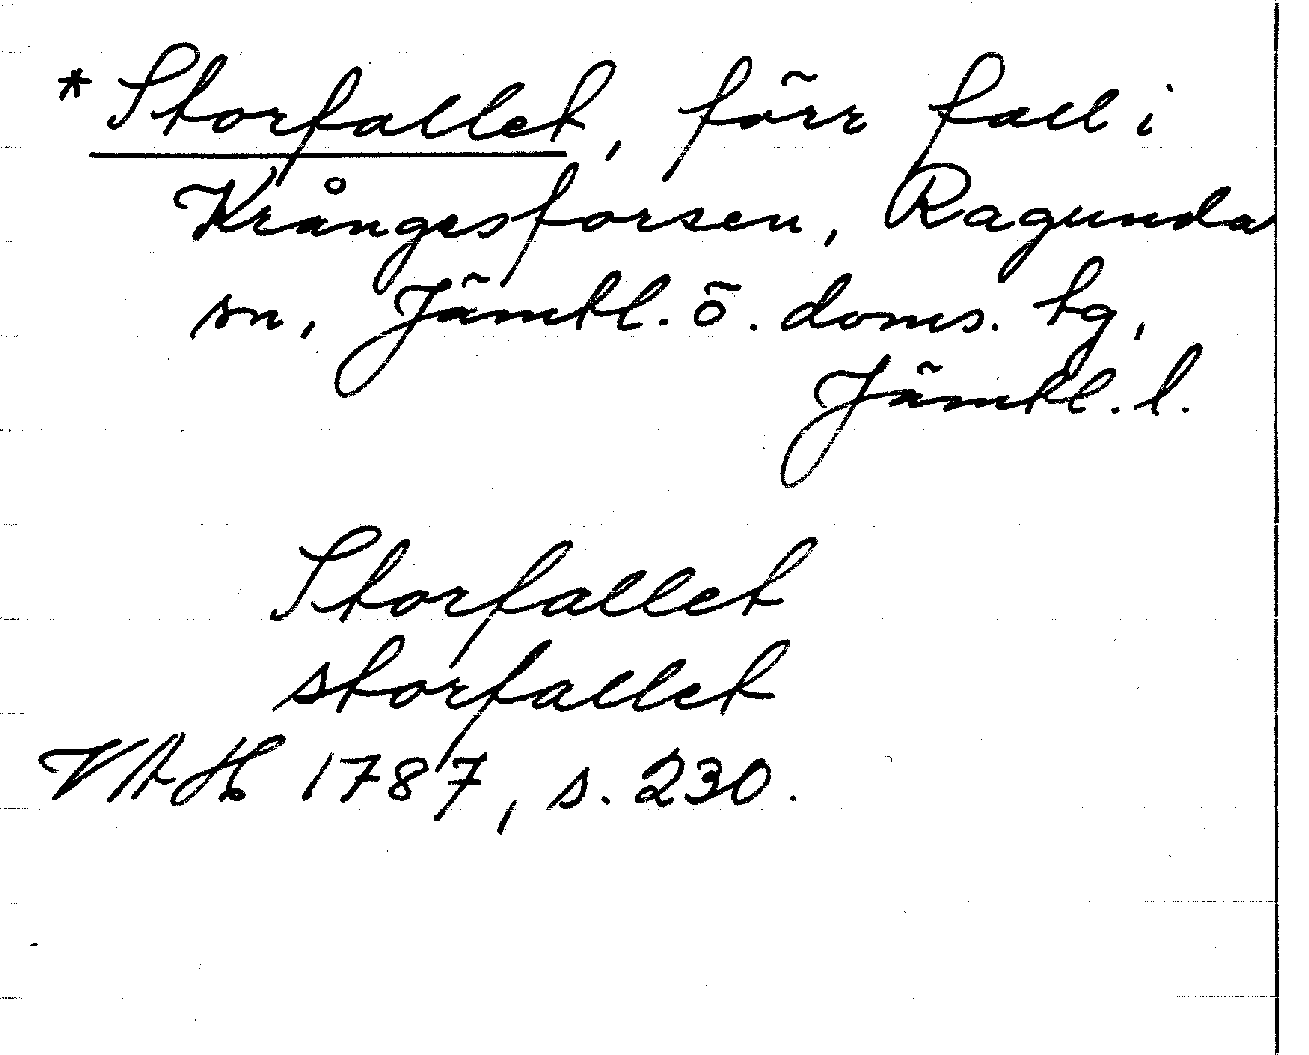 *Storfallet, förr fall i
Krångesforsen, Ragunda
sn, Jämtl. ö. doms. tg,
Jämtl. l.
Storfallet
storfallet
VAH 1787, s. 230.